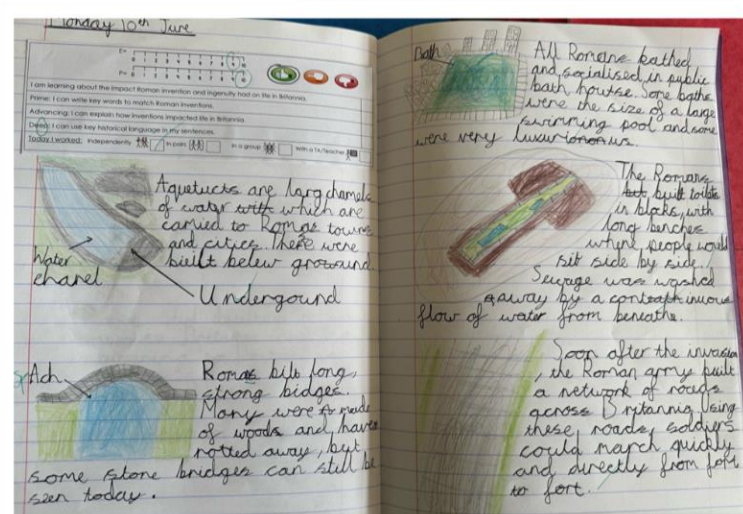 Monday 10th June
I am learning about the impact Roman invention and ingenuity had on life in Britannia.
Prime: I can write key words to match Roman inventions.
Advancing: I can explain how inventions impacted life in Britannia.
Deep: I can use key historical language in my sentences.
Today I worked: Independently In pairs In a group With a TA/Teacher
Aquetucts are larg chanels
of water with which are
carried to Romas towns
and cities. There were
biuilt below grouound.
Water
chanel
Undergound
Ach
Romas bilt long,
strong bidges.
Many were made
of woods and have
rotted away, but
some stone bridges can still be
seen today.
Bath
All Romans bathed
and socialised in public
bath houtse. Some baths
were the size of a large
swimming pool and some
were very luxurionous.
The Romans
but built toilets
in blocks, with
long benches
whyre people would
sit side by side.
Sewage was washed
away by a continuous
flow of water from beneathe.
Soon after the invasion
, the Roman army built
a network of roads
across Britannia Using
these roads, soldiers
could march quickly
and directly from fort
to fort.